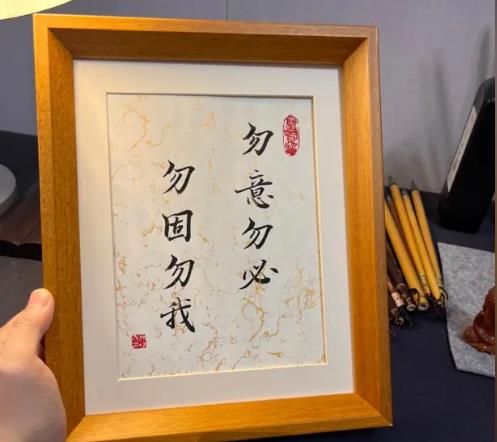 勿意勿必
勿固勿我